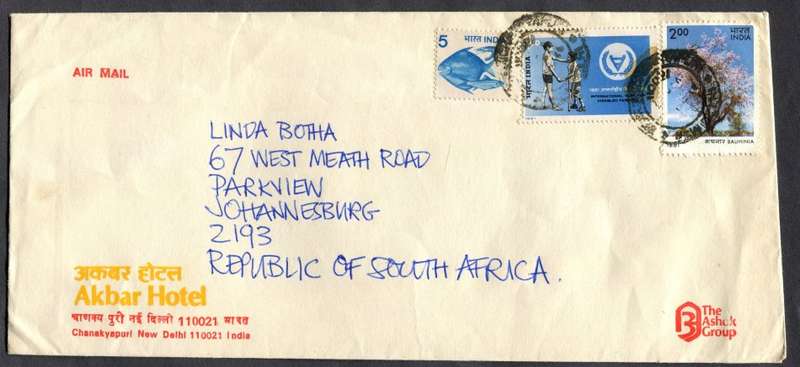 AIR MAIL
5 भारत INDIA
भारत INDIA
INTERNATIONAL
DISABLED PERSONS
2.00 भारत
INDIA
कचनार BAUHINIA
LINDA BOTHA
67 WEST MEATH ROAD
PARKVIEW
JOHANNESBURG
2193
REPUBLIC OF SOUTH AFRICA.
अकबर होटल
Akbar Hotel
चाणक्य पुरी नई दिल्ली 110021 भारत
Chanakyapuri New Delhi 110021 India
The
Ashok
Group